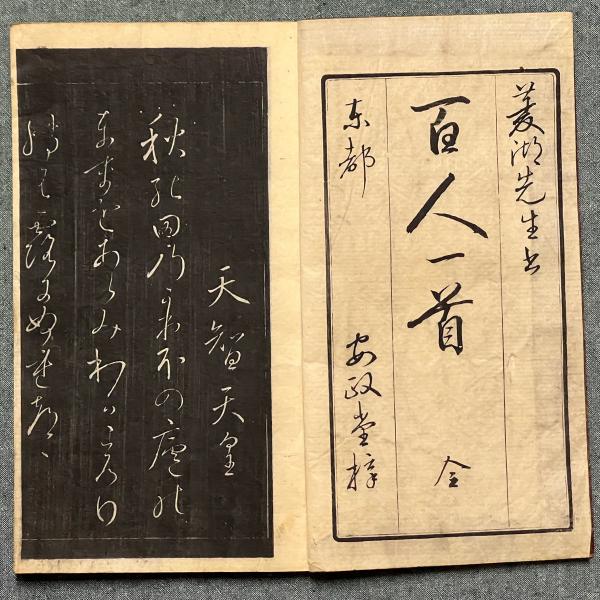 菱湖先生書
百人一首 全
東都 安政堂梓
天智天皇
秋の田のかりほの廬の
とまをあらみわかころも
では露にぬれつゝ